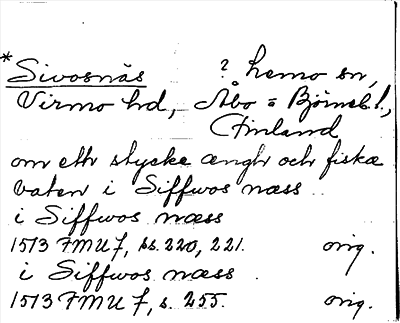 * Sivosnäs ? Lemo sn,
Virmo hd, Åbo = Björneb.l.,
Finland
om eth stycke ængh och fiskæ
vaten i Siffwos næss ..
i Siffwos næss
1513 FMU 7, ss. 220, 221. orig.
i Siffwos næss .
1513 FMU 7, s. 255. orig.